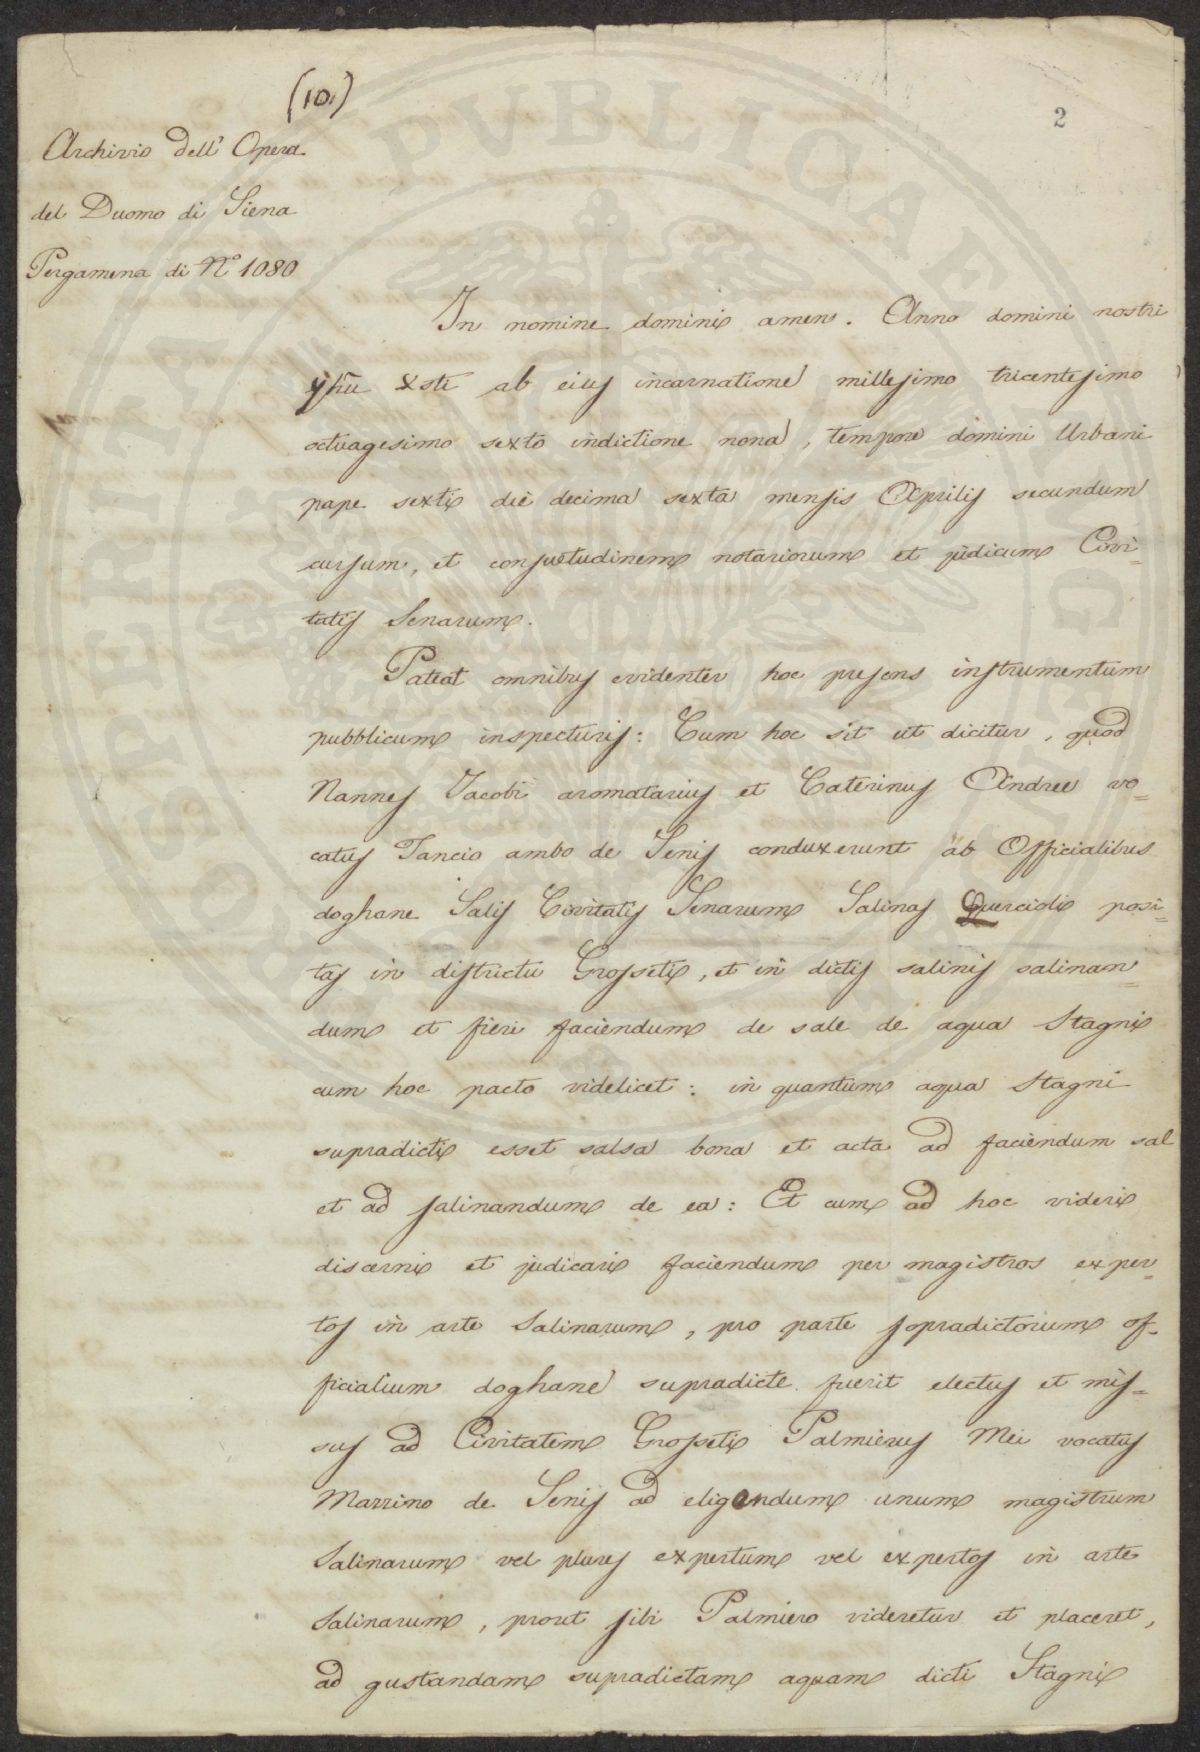 (10.)
2
Archivio dell' Opera
del Duomo di Siena
Pergamena di N.º 1080
In nomine domini amen. Anno domini nostri
yhu xsti ab eius incarnatione millesimo tricentesimo
octuagesimo sexto indictione nona, tempore domini Urbani
pape sexti die decima sexta mensis Aprilis secundum
cursum, et consuetudinem notariorum et judicum Civi=
tatis Senarum.
Pateat omnibus evidenter hoc presens instrumentum
pubblicum inspecturis: Cum hoc sit ut dicitur, quod
Nannes Jacobi aromatarius et Caterinus Andree vo=
catus Tancio ambo de Senis conduxerunt ab Officialibus
doghane Salis Civitatis Senarum Salinas Querciole posi=
tas in districtu Grosseti, et in dictis salinis salinan=
dum et fieri faciendum de sale de aqua Stagni
cum hoc pacto videlicet: in quantum aqua Stagni
supradicti esset salsa bona et acta ad faciendum sal
et ad salinandum de ea: Et cum ad hoc videri
discerni et judicari faciendum per magistros exper=
tos in arte Salinarum, pro parte sopradictorum of=
ficialium doghane supradicte fuerit electus et mis=
sus ad Civitatem Grosseti Palmierus Mei vocatus
Marrino de Senis ad eligendum unum magistrum
Salinarum vel plures expertum vel expertos in arte
Salinarum, prout sibi Palmiero videretur et placeret,
ad gustandam supradictam aquam dicti Stagni